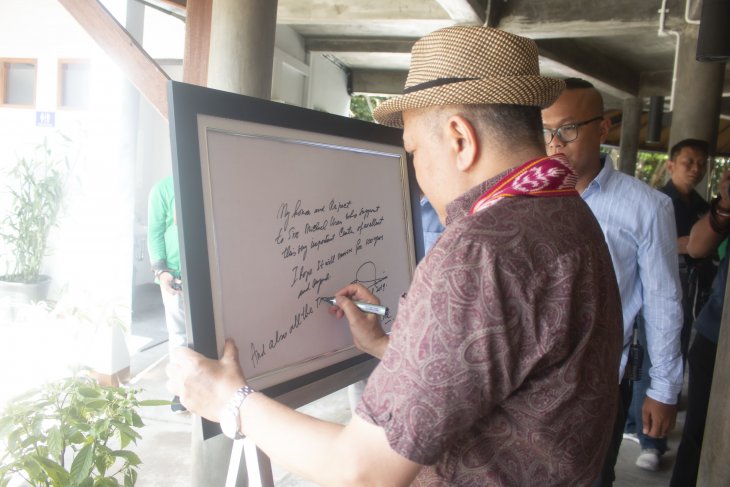 My honor and respect
to Sir Michael Uren who support
this very important Center of excellent
I hope it will remain for everyone
and
And also all the